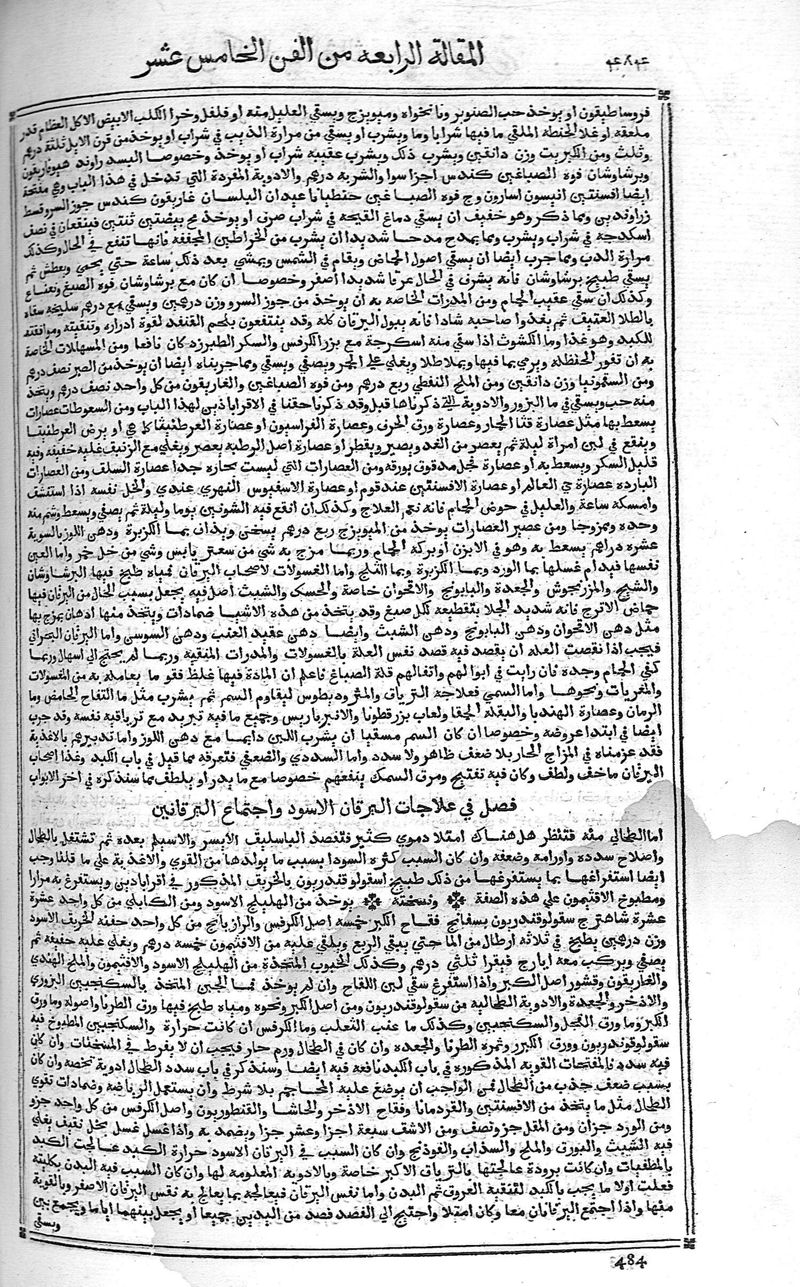 المقالة الرابعه من الفن الخامس عشر
۴۸۴
فروساطيقون او يوخذ حب الصنوبر ونانخواه وميويزج ويسقي العليل منه او فلفل وخرا الكلب الابيض الاكل العظام قدر
ملعقه او غلا الحنطه الملقي ما فيها شرابا وما ويشرب او يسقي من مرارة الذيب في شراب او يوخذ من قرن الايل ثلثة درهم
وثلث ومن الكبريت وزن دانقين ويشرب ذلك ويشرب عقيبه شراب او يوخذ وخصوصا اليسد راوند هيوفاريقون
وبرشاوشان فوه الصباغين كندس اجزا سوا والشربة درهم والادوية المفردة التي تدخل في هذا الباب وهي مفتحة
ايضا افسنتين انيسون اسارون وج فوه الصباغين جنطيانا عيدان البلسان غاريقون كندس جوز السرو قسط
زراوندين وما ذكر وهو خفيف ان يسقي دماغ القبجه في شراب صرف او يوخذ مح بيضتين ثنتين فينقعان في نصف
اسكرجة في شراب ويشرب وما يمدح مدحا شديدا ان يشرب من الخراطين المجففه فانها تنفع في الحال وكذلك
مرارة الدب وما جرب ايضا ان يسقي اصول الحماض ويقام في الشمس ويمشي بعد ذلك ساعة حتي يحمي ويعطش ثم
يسقي طبيخ برشاوشان فانه يشرف في الحال عرقا شديدا اصفر وخصوصا ان كان مع برشاوشان فوه الصبغ ونعناع
وكذلك ان سقي عقيب الحمام ومن المدرات الخاصه به ان يوخذ من جوز السرو وزن درهمين ويسقي مع درهم سليخه سقاه
بالطلا العتيق ثم يغدوا صاحبه شادا فانه يبول اليرقان كله وقد ينتفعون بلحم القنفذ لقوة ادراره وتنقيته وموافقته
للكبد وهو غذا وما الكشوث اذا سقي منه اسكرجة مع بزر الكرفس والسكر الطبرزد كان نافعا ومن المسهلات الخاصة
به ان تقور الحنظله ويرمي بما فيها ويملا طلا ويغلي على الجمر ويصفي ويسقي وما جربناه ايضا ان يوخذ من الصبر نصف درهم
ومن السقمونيا وزن دانقين ومن الملح النفطي ربع درهم ومن فوه الصباغين والغاريقون من كل واحد نصف درهم ويتخذ
منه حب ويسقي في ما البزور والادوية التي ذكرناها قبل وقد ذكرنا حقنا في الاقراباذين لهذا الباب ومن السعوطات عصارات
يسعط بها مثل عصارة قثا الحمار وعصارة ورق الحرف وعصارة الفراسيون او عصارة العرطنيثا كما هي او برض العرطنيثا
وينقع في لبن امراة ليلة ثم يعصر من الغد ويصير ويقطر او عصارة اصل الرطبه يعصر ويغلي مع الزنبق غليه خفيفه وفيه
قليل السكر ويسعط به او عصارة فجل مدقوق بورقه ومن العصارات التي ليست بحاره جدا عصارة السلق ومن العصارات
البارده عصارة حي العالم او عصارة الافسنتين عند قوم او عصارة الاسفيوس النهري عندي والخل نفسه اذا استنشق
وامسكه ساعة والعليل في حوض الحمام فانه نعم العلاج وكذلك ان انقع فيه الشونيز يوما وليلة ثم يصفي ويسعط وشم منه
وحده وممزوجا ومن عصير العصارات يوخذ من الميويزج ربع درهم يسخن ويداف بما الكزبرة ودهن اللوز بالسوية
عشره دراهم يسعط به وهو في الابزن او بركه الحمام وربما مزج به شي من سعتر يابس وشي من خل خمر واما العين
نفسها فيدام غسلها بما الورد وبما الكزبرة وبما الثلج واما الغسولات لاصحاب اليرقان فمياه طبخ فيها البرشاوشان
والشيح والمرزنجوش والجعدة والبابونج والاقحوان خاصة والحسك والشبث اصل فيه يجعل بسبب الحال من اليرقان فيها
حماض الاترج فانه شديد الجلا بتقطيعه لكل صبغ وقد يتخذ من هذه الاشيا ضمادات ويتخذ منها ادهان يمرخ بها
مثل دهن الاقحوان ودهن البابونج ودهن الشبث وايضا دهن عقيد العنب ودهن السوسن واما اليرقان البحراني
فيجب اذا نقصت العله ان يقصد فيه قصد نفس العلة بالغسولات والمدرات المنقيه وربما لم يحتج الي اسهال وربما
كفي الحمام وحده فان رايت في ابوالهم واثفالهم قلة الصباغ فاعلم ان المادة فيها غلظ فقو ما يعامله به من الغسولات
والمعرقات ونحوها واما السمي فعلاجه الترياق والمثروديطوس ليقاوم السم ثم يشرب مثل ما التفاح الحامض وما
الرمان وعصارة الهندبا والبقلة الحمقا ولعاب بزرقطونا والانبرباريس وجميع ما فيه تبريد مع ترياقيه نفسه وقد جرب
ايضا في ابتدا عروضه وخصوصا ان كان السم مسقيا ان يشرب اللبن دايما مع دهن اللوز واما تدبيرهم بالاغذية
فقد عزمناه في المزاج الحار بلا ضعف ظاهر ولا سدد واما السددي والضعفي فتعرفه مما قيل في باب الكبد وغذا اصحاب
اليرقان ما خف ولطف وكان فيه تفتيح ومرق السمك ينفعهم خصوصا مع ما يدر او يلطف مما سنذكره في اخر الابواب
فصل في علاجات اليرقان الاسود واجتماع اليرقانين
اما الطحالي منه فتنظر هل هناك امتلا دموي كثير فتفصد الباسليق الايسر والاسيلم بعده ثم تشتغل بالطحال
واصلاح سدده واورامه وضعفه وان كان السبب كثره السودا بسبب ما يولدها من القوي والاغذية علي ما قلنا وجب
ايضا استفراغها بما يستفرغها من ذلك طبيخ اسقولوقندريون بالخريف المذكور في اقرابادين ويستفرغ به مرارا
ومطبوخ الافتيمون علي هذه الصفة ونسخته يوخذ من الهليلج الاسود ومن الكابلي من كل واحد عشرة
عشرة شاهترج سقولوقندريون بسفايج فقاح الكبر خمسه اصل الكرفس والرازيانج من كل واحد حفنه الخريف الاسود
وزن درهمين يطبخ في ثلاثه ارطال من الما حتي يبقي الربع ويلقي عليه من الافتيمون خمسة درهم ويغلي عليه خفيفه ثم
يصفي ويركب معه ايارج فيقرا ثلثي درهم وكذلك الحبوب المتخذة من الهليلج الاسود والافتيمون والملح الهندي
والغاريقون وقشور اصل الكبر واذا استفرغ سقي لبن اللقاح وان لم يوخذ فما الجبن المتخذ بالسكنجبين البزوري
والاذخر والجعدة والادوية الطحالية من سقولوقندريون ومن اصل الكبر ونحوه ومياه طبخ فيها ورق الطرفا واصوله وما ورق
الكبر وما ورق الفجل والسكنجبين وكذلك ما عنب الثعلب وما الكرفس ان كانت حرارة والسكنجبين المطبوخ فيه
سقولوقندريون وورق الكبر وثمره الطرفا والجعده وان كان في الطحال ورم حار فيجب ان لا يفرط في المسخنات وان كان
فيه سدد فالمفتحات القوية المذكوره في باب الكبد نافعة فيه ايضا وسنذكر في باب سدد الطحال ادوية تخصه وان كان
بسبب ضعف جذب من الطحال فمن الواجب ان يوضع عليه المحاجم بلا شرط وان يستعمل الرياضة وضمادات تقوي
الطحال مثل ما يتخذ من الافسنتين والقردمانا وفقاح الاذخر والحاشا والقنطوريون واصل الكرفس من كل واحد جزو
ومن الورد جزان ومن المقل جزو نصف ومن الاشق سبعة اجزا وعشر جزا ويضمد به واذا غسل غسل بخل ثقيف يغلي
فيه الشبث والبورق والملح والسذاب والفوذنج وان كان السبب في اليرقان الاسود حرارة الكبد عالجت الكبد
بالمطفيات وان كانت برودة عالجتها بالترياق الاكبر خاصة وبالادويه المعلومه لها وان كان السبب فيه البدن بكليته
فعلت اولا ما يجب بالكبد لتنقية العروق ثم البدن واما نفس اليرقان فيعالجه بما يعالج به نفس اليرقان الاصفر وبالقوية
منها واذا اجتمع اليرقانان معا وكان امتلا واحتيج الي الفصد فصد من اليدين جميعا او يجعل بينهما اياما ويجمع بين
ويسقي
484